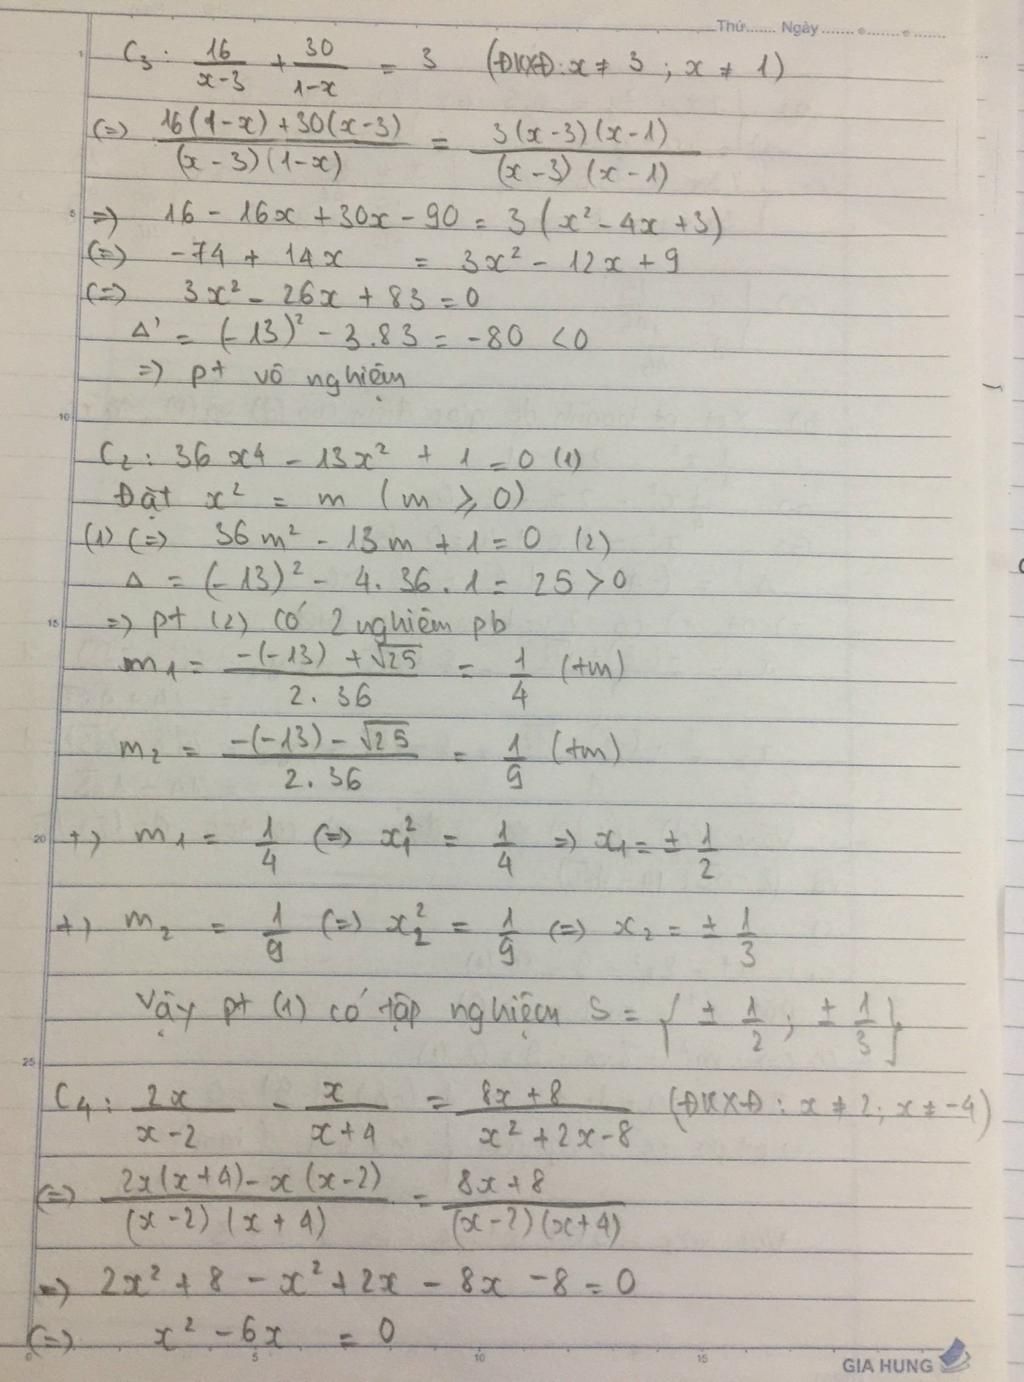 Thứ....... Ngày.......
C3: 16/(x-3) + 30/(1-x) = 3 (ĐKXĐ: x ≠ 3; x ≠ 1)
(=) (16(1-x)+30(x-3))/((x-3)(1-x)) = (3(x-3)(x-1))/((x-3)(x-1))
5 =) 16 - 16x + 30x - 90 = 3(x² - 4x + 3)
(=) -74 + 14x = 3x² - 12x + 9
(=) 3x² - 26x + 83 = 0
Δ' = (-13)² - 3.83 = -80 < 0
=) pt vô nghiệm
10
C2: 36x4 - 13x² + 1 = 0 (1)
Đặt x² = m (m ≥ 0)
(1) (=) 36m² - 13m + 1 = 0 (2)
Δ = (-13)² - 4.36.1 = 25 > 0
15 =) pt (2) có 2 nghiệm pb
m1 = (-(-13) + √25)/(2.36) = 1/4 (tm)
m2 = (-(-13) - √25)/(2.36) = 1/9 (tm)
20 +) m1 = 1/4 (=) x1² = 1/4 =) x1 = ± 1/2
+) m2 = 1/9 (=) x2² = 1/9 (=) x2 = ± 1/3
Vậy pt (1) có tập nghiệm S = { ± 1/2; ± 1/3 }
25
C4: 2x/(x-2) - x/(x+4) = (8x+8)/(x²+2x-8) (ĐKXĐ: x ≠ 2; x ≠ -4)
(=) (2x(x+4) - x(x-2))/((x-2)(x+4)) = (8x+8)/((x-2)(x+4))
=) 2x² + 8 - x² + 2x - 8x - 8 = 0
(=) x² - 6x = 0
0 5 10 15
GIA HUNG